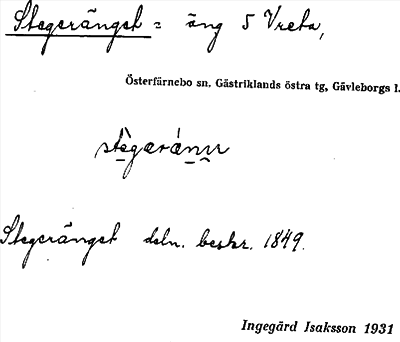 Stegeränget = äng 5 Vreta,
Österfärnebo sn. Gästriklands östra tg, Gävleborgs l.
Stegeränget deln. beskr. 1849.
Ingegärd Isaksson 1931